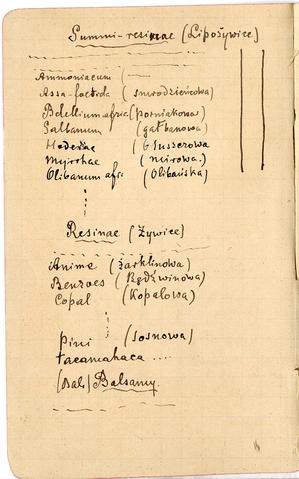 Gummi-resinae (Lipożywice)
Ammoniacum (—
Assa-foetida (smrodzieńcowa)
Bdellium afric (
Galbanum (gałbanowa)
Hederae (bluszczowa
Myrrhae (mirowa.)
Olibanum afr. (Olibańska)
Resinae (Żywice)
Anime (
Benzoes (Będźwinowa)
Copal (Kopalowa)
Pini (sosnowa)
tacamahaca ....
(Bals) Balsamy.